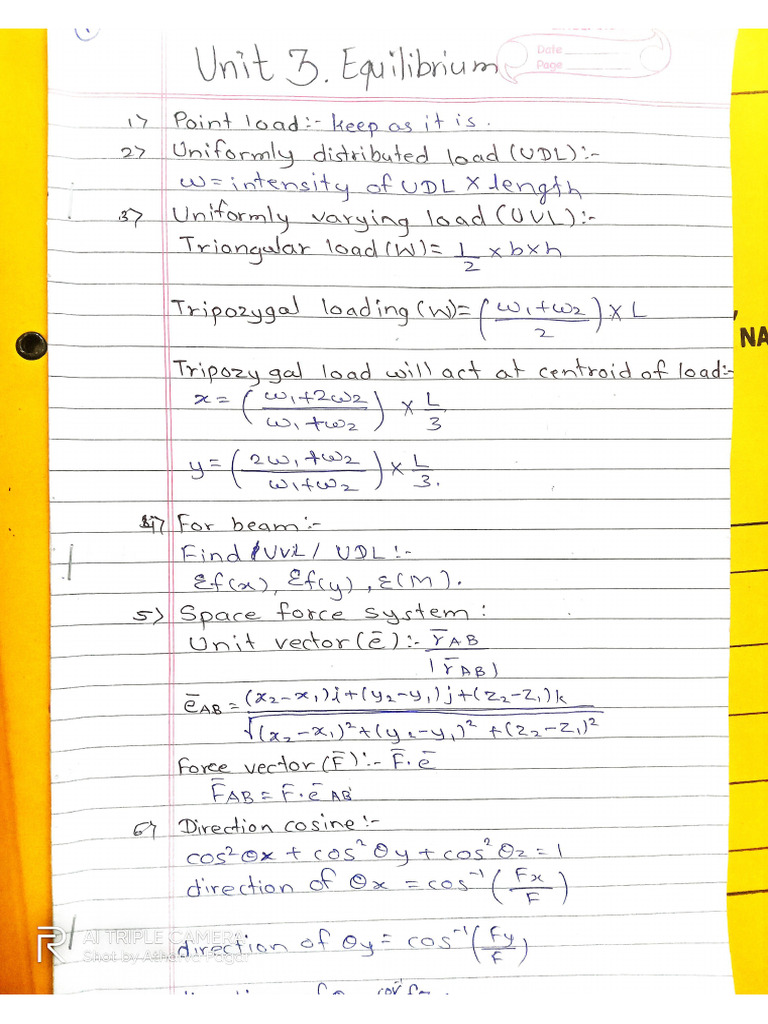 1
Unit 3. Equilibrium
Date
Page
1> Point load:- keep as it is.
2> Uniformly distributed load (UDL):-
w = intensity of UDL × length
3> Uniformly varying load (UVL):-
Triangular load (W) = 1/2 × b × h
Tripozygal loading (W) = (ω1+ω2/2) × L
NA
Tripozygal load will act at centroid of load:-
x = (ω1+2ω2/ω1+ω2) × L/3
y = (2ω1+ω2/ω1+ω2) × L/3.
4> For beam:-
Find UVL / UDL:-
Ɛf(x), Ɛf(y), Ɛ(M).
5> Space force system:
Unit vector (ē):- r̄AB/|r̄AB|
ēAB = (x2-x1)i+(y2-y1)j+(z2-z1)k/√(x2-x1)²+(y2-y1)²+(z2-z1)²
Force vector (F̄):- F̄.ē
F̄AB = F̄.ēAB
6> Direction cosine:-
cos²θx + cos²θy + cos²θz = 1
direction of θx = cos⁻¹(Fx/F)
direction of θy = cos⁻¹(Fy/F)
AI TRIPLE CAMERA
Shot by Atharva Pagar